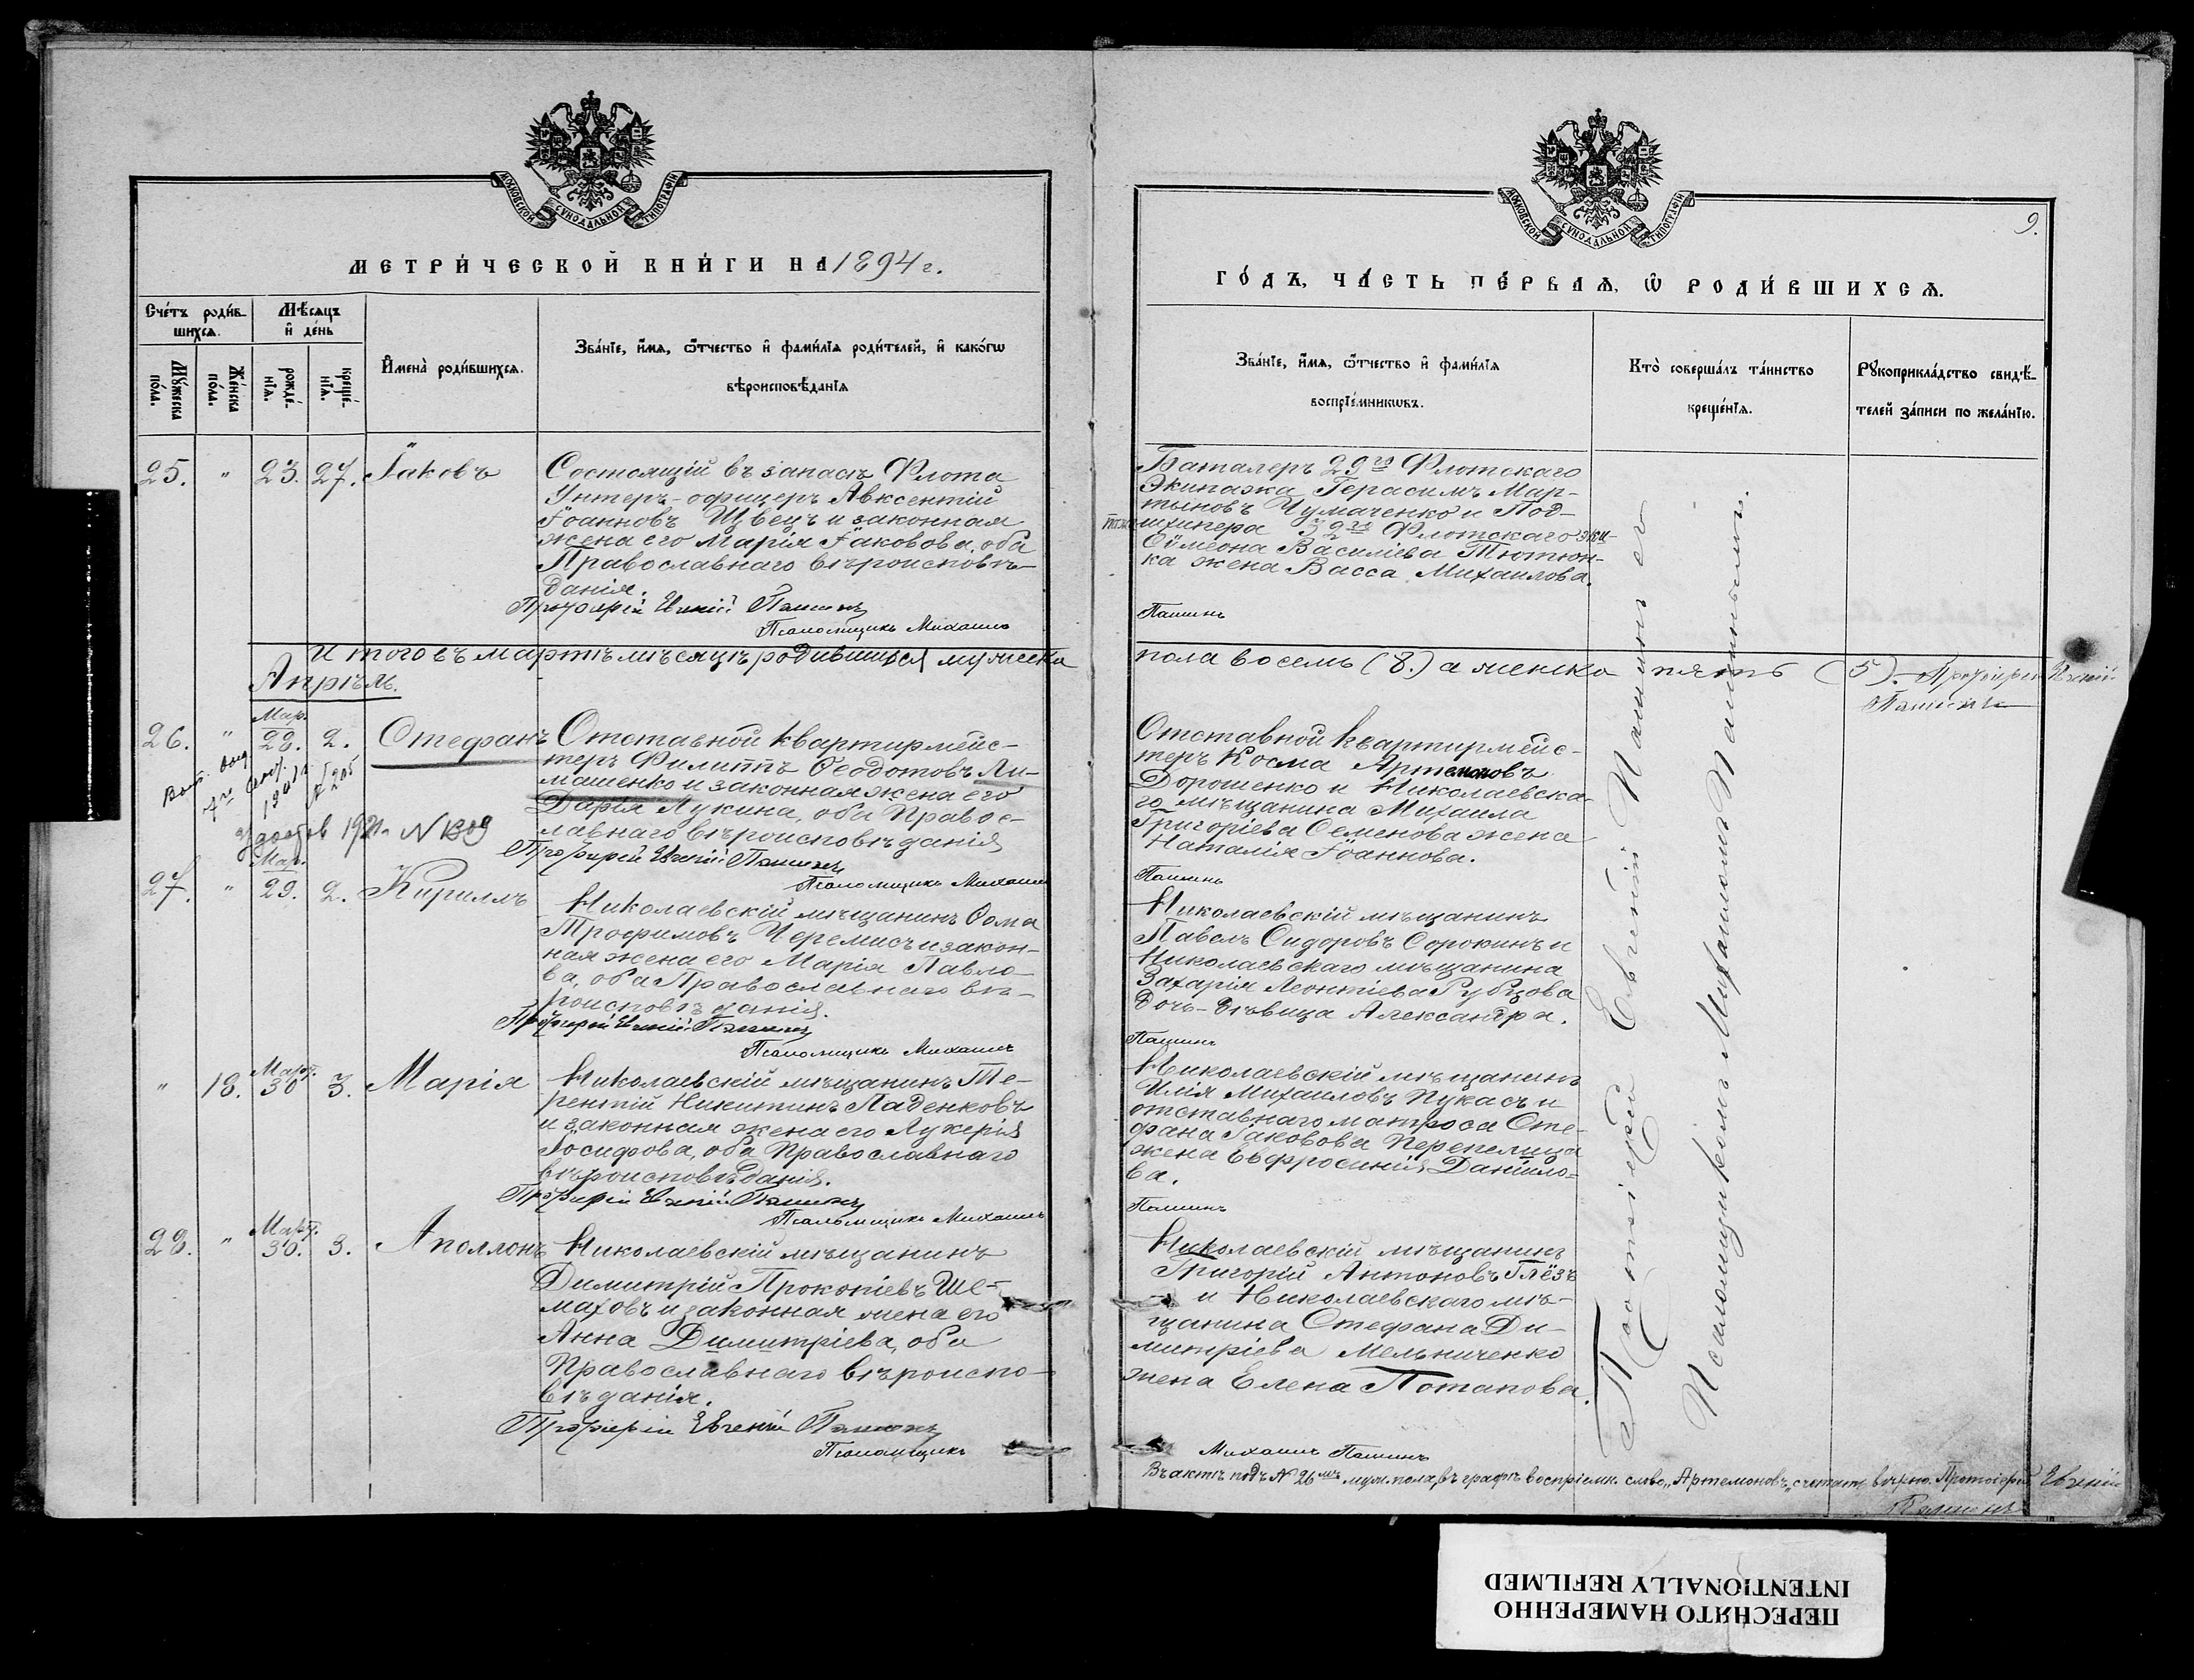 МОСКОВСКОЙ СѴНОДАЛЬНОЙ ТИПОГРАФІИ
МЕТРИ́ЧЕСКОЙ КНИ́ГИ НА 1894 г.
Сче́тъ роди́вшихсѧ.
Мѣ́сѧцъ и҆ де́нь
Мꙋ́жеска по́ла.
Же́нска по́ла.
рожде́нїѧ.
креще́нїѧ.
И҆мена̀ роди́вшихсѧ.
Зва́нїе, и҆́мѧ, ѻ҆́тчество и҆ фами́лїѧ роди́телей, и҆ како́гѡ
вѣроисповѣ́данїѧ
25. " 23. 27. Іаковъ
Состоящій въ запасѣ Флота
Унтеръ-офицеръ Авксентій
Іоанновъ Швецъ и законная
жена его Марія Іаковова, оба
Православнаго вѣроисповѣ-
данія.
Протоіерей Евгеній Пашинъ
Псаломщикъ Михаилъ
Итого въ мартѣ мѣсяцѣ родившихся мужеска
Апрѣль.
26. " Мар. 28. 2. Стефанъ
Отставной квартирмейс-
теръ Филиппъ Ѳеодотовъ Ли-
машенко и законная жена его
Дарія Лукина, оба Правос-
лавнаго вѣроисповѣданія
Протоіерей Евгеній Пашинъ
Псаломщикъ Михаилъ
N 1309
27. " Мар. 29. 2. Кириллъ
Николаевскій мѣщанинъ Ѳома
Трофимовъ Черемисъ и закон-
ная жена его Марія Павло-
ва, оба Православнаго вѣ-
роисповѣданія.
Протоіерей Евгеній Пашинъ
Псаломщикъ Михаилъ
" 18. Март. 30 3. Марія
Николаевскій мѣщанинъ Те-
рентій Никитинъ Паденковъ
и законная жена его Лукерія
Іосифова, оба Православнаго
вѣроисповѣданія.
Протоіерей Евгеній Пашинъ
Псаломщикъ Михаилъ
28. " Март. 30. 3. Аполлонъ
Николаевскій мѣщанинъ
Димитрій Прокопіевъ Ше-
маховъ и законная жена его
Анна Димитріева, оба
Православнаго вѣроиспо-
вѣданія.
Протоіерей Евгеній Пашинъ
Псаломщикъ
9.
МОСКОВСКОЙ СѴНОДАЛЬНОЙ ТИПОГРАФІИ
ГО́ДЪ, ЧА́СТЬ ПЕ́РВАѦ, Ѽ РОДИ́ВШИХСѦ.
Зва́нїе, и҆́мѧ, ѻ҆́тчество и҆ фами́лїѧ
воспрїе́мникѡвъ.
Кто̀ соверша́лъ та́инство
креще́нїѧ.
Рꙋкоприкла́дство свидѣ́-
телей за́писи по жела́нїю.
Баталеръ 29го Флотскаго
Экипажа Герасимъ Мар-
тыновъ Чумаченко и Под-
шхипера 32го Флотскаго эки-
Сѵмеона Василіева Тютюн-
ка жена Васса Михаилова.
Пашинъ
пола восемь (8.) а женска пять (5). Протоіерей Евгеній
Пашинъ
Отставной квартирмейс-
теръ Косма Артемоновъ
Дорошенко и Николаевска-
го мѣщанина Михаила
Григоріева Семенова жена
Наталія Іоаннова.
Пашинъ
Николаевскій мѣщанинъ
Павелъ Сидоровъ Сорокинъ и
Николаевскаго мѣщанина
Захарія Леонтіева Рубцова
дочь-дѣвица Александра.
Пашинъ
Николаевскій мѣщанинъ
Илія Михаиловъ Пукасъ и
отставнаго матроса Сте-
фана Іаковова Перепелица
жена Евфросинія Даніило-
ва.
Пашинъ
Николаевскій мѣщанинъ
Григорій Антоновъ Глёзъ
и Николаевскаго мѣ-
щанина Стефана Ди-
митріева Мельниченко
жена Елена Потапова.
Михаилъ Пашинъ
Протоіерей Евгеній Пашинъ съ
Псаломщикомъ Михаиломъ Пашинымъ.
Въ актѣ подъ N 26мъ муж. пола, въ графѣ воспріемн. слово „Артемоновъ" считать вѣрно. Протоіерей Евгеній
Пашинъ
ПЕРЕСНЯТО НАМЕРЕННО
INTENTIONALLY REFILMED